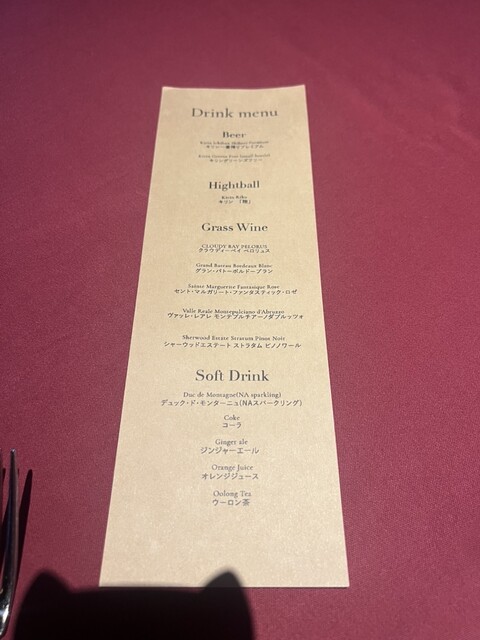 Drink menu
Beer
Kirin Ichiban
キリン一番搾りプレミアム
Kirin Green Free
キリングリーンズフリー
Hightball
Kirin Riku
キリン 「陸」
Grass Wine
CLOUDY BAY PELORUS
クラウディーベイ ペロリュス
Grand Bateau Bordeaux Blanc
グラン・バトーボルドーブラン
Sainte Marguerite Fantastique Rose
セント・マルガリート・ファンタスティック・ロゼ
Valle Reale Montepulciano d'Abruzzo
ヴァッレ・レアレ モンテプルチアーノダブルッツォ
Sherwood Estate Stratum Pinot Noir
シャーウッドエステート ストラタム ピノノワール
Soft Drink
Duc de Montagne(NA sparkling)
デュック・ド・モンターニュ(NAスパークリング)
Coke
コーラ
Ginger ale
ジンジャーエール
Orange Juice
オレンジジュース
Oolong Tea
ウーロン茶